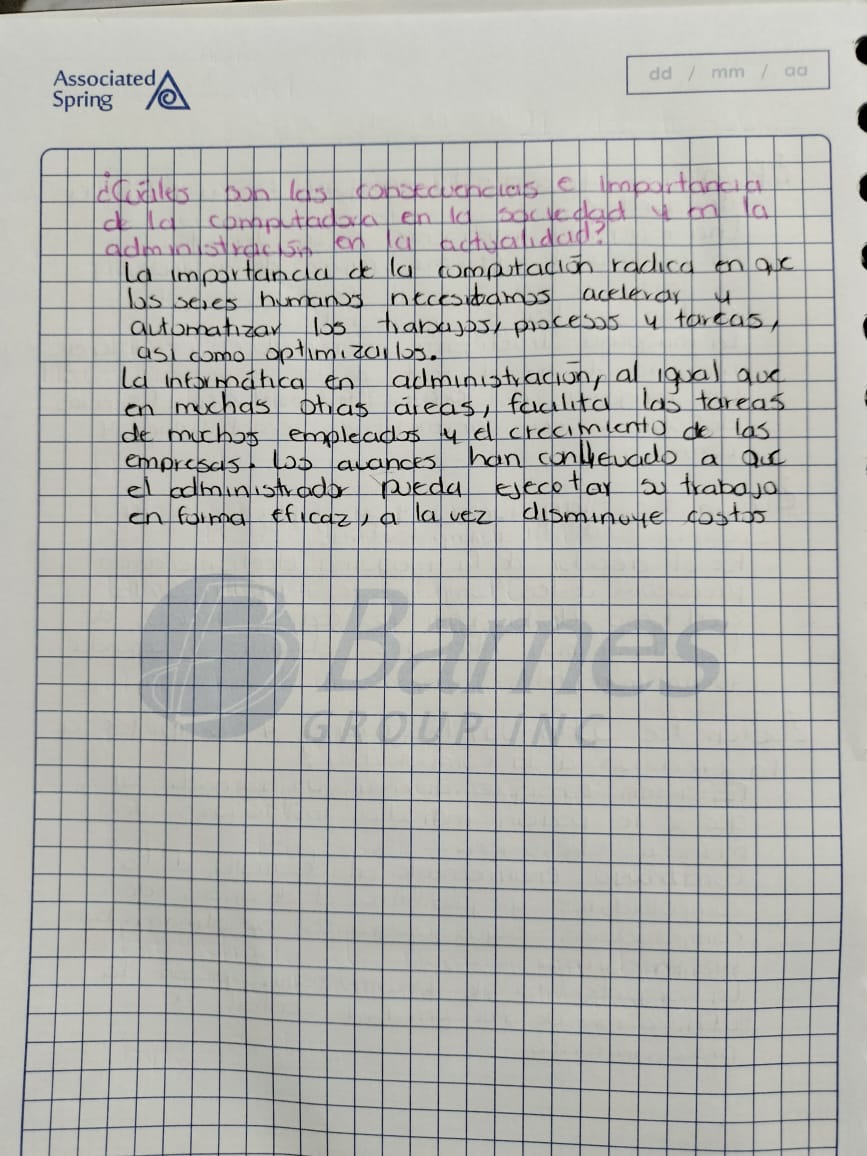 Associated
Spring
dd / mm / aa
¿Cuáles son las consecuencias e importancia
de la computadora en la sociedad y en la
administración en la actualidad?
La importancia de la computación radica en que
los seres humanos necesitamos acelerar y
automatizar los trabajos, procesos y tareas,
asi como optimizarlos.
La informática en administración, al igual que
en muchas otras áreas, facilita las tareas
de muchos empleados y el crecimiento de las
empresas. Los avances han conllevado a que
el administrador pueda ejecutar su trabajo
en forma eficaz, a la vez disminuye costos
Barnes
GROUP INC